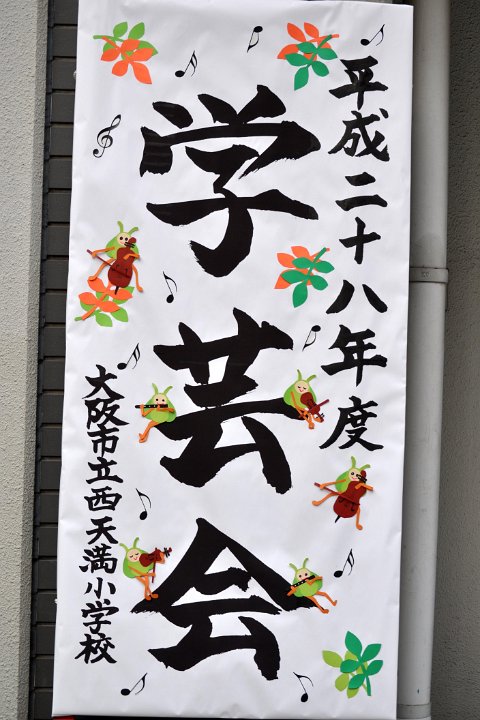 平成二十八年度
学芸会
大阪市立西天満小学校